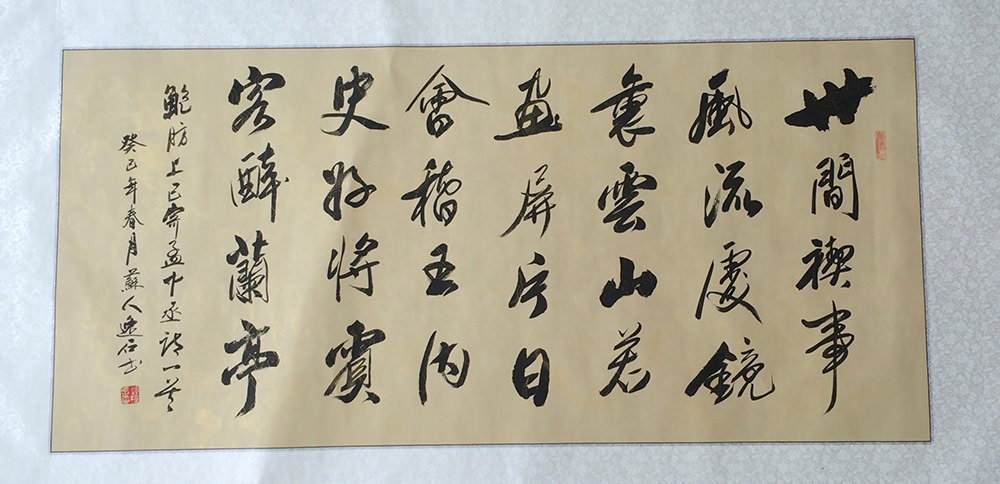 世間禊事
風流處鏡
裏雲山若
畫屏今日
會稽王内
史好將賓
客醉蘭亭
鮑防上巳寄孟中丞詩一首
癸巳年春月蘇人逸石书